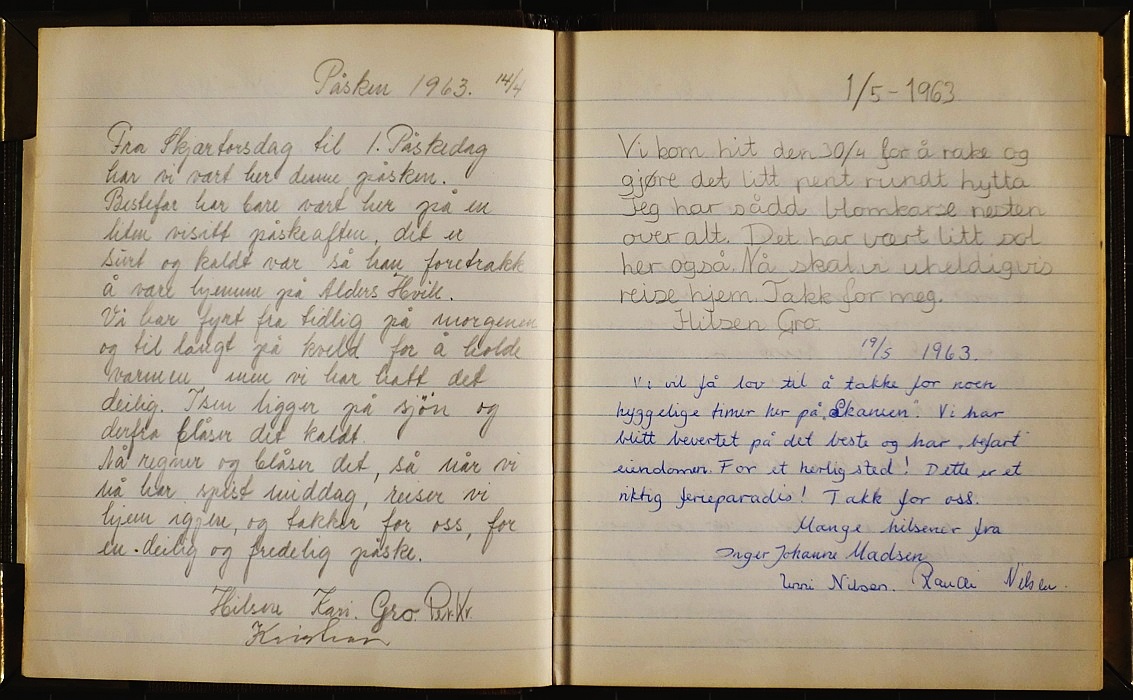 Påsken 1963. 14/4
Fra Skjærtorsdag til 1. Påskedag
har vi vært her denne påsken.
Bestefar har bare vært her på en
liten visitt påskeaften, det er
surt og kaldt vær så han foretrakk
å være hjemme på Alders Hvile.
Vi har fyrt fra tidlig på morgenen
og til langt på kveld for å holde
varmen men vi har hatt det
deilig. Isen ligger på sjøn og
derfra blåser det kaldt.
Nå regner og blåser det, så når vi
nå har spist middag, reiser vi
hjem igjen, og takker for oss, for
en deilig og fredelig påske.
Hilsen Kari. Gro. Per. Kr.
Kristian
1/5-1963
Vi kom hit den 30/4 for å rake og
gjøre det litt pent rundt hytta
Jeg har sådd blomkarse nesten
over alt. Det har vært litt sol
her også. Nå skal vi uheldigvis
reise hjem. Takk for meg.
Hilsen Gro.
19/5 1963.
Vi vil få lov til å takke for noen
hyggelige timer her på "Skansen". Vi har
blitt bevertet på det beste og har "befart"
eiendomen. For et herlig sted! Dette er et
riktig ferieparadis! Takk for oss.
Mange hilsener fra
Inger Johanne Madsen
Unni Nilsen. Randi Nilsen.